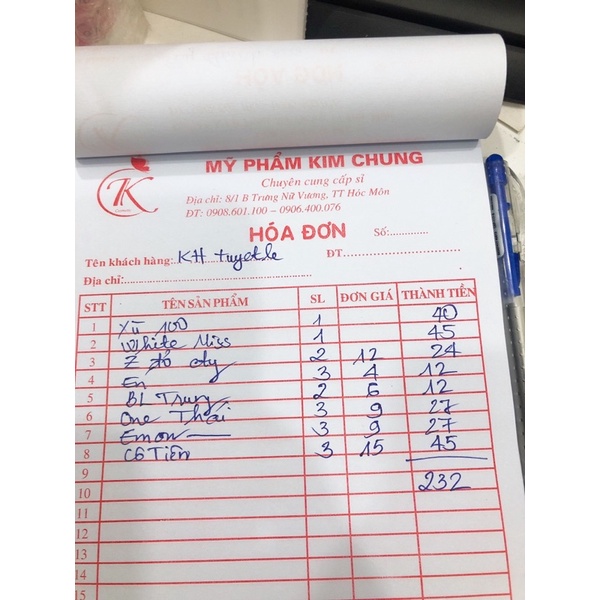 TK
MỸ PHẨM KIM CHUNG
Chuyên cung cấp sỉ
Địa chỉ: 8/1 B Trưng Nữ Vương, TT Hóc Môn
ĐT: 0908.601.100 – 0906.400.076
HÓA ĐƠN Số:.............
Tên khách hàng: KH tuyetle ĐT:..............................
Địa chỉ:..................................................
STT TÊN SẢN PHẨM SL ĐƠN GIÁ THÀNH TIỀN
1 Xù 100 1 40
2 White Miss 1 45
3 Z đỏ 2 12 24
4 En 3 4 12
5 BL Trung 2 6 12
6 One Thái 3 9 27
7 Emon 3 9 27
8 CG Tiên 3 15 45
9
10 232
11
12
13
14
15